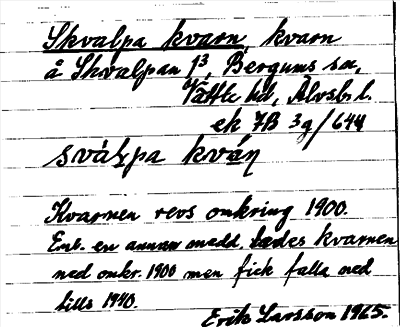 Skvalpa kvarn, kvarn
å Skvalpan 1³, Bergums sn,
Vättle hd, Älvsb. l.
ek 7B 3g/644
svàlpa kván
Kvarnen revs omkring 1900.
Enl. en annan medd. lades kvarnen
ned omkr. 1900 men fick falla ned
tills 1940.
Erik Larsson 1965.